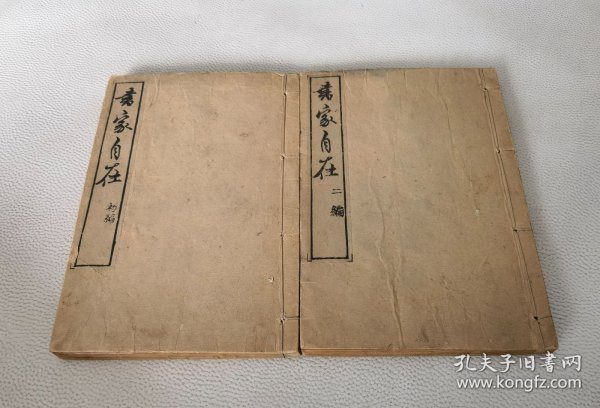 書家自在
初編
書家自在
二編
孔夫子旧书网
www.kongfz.com